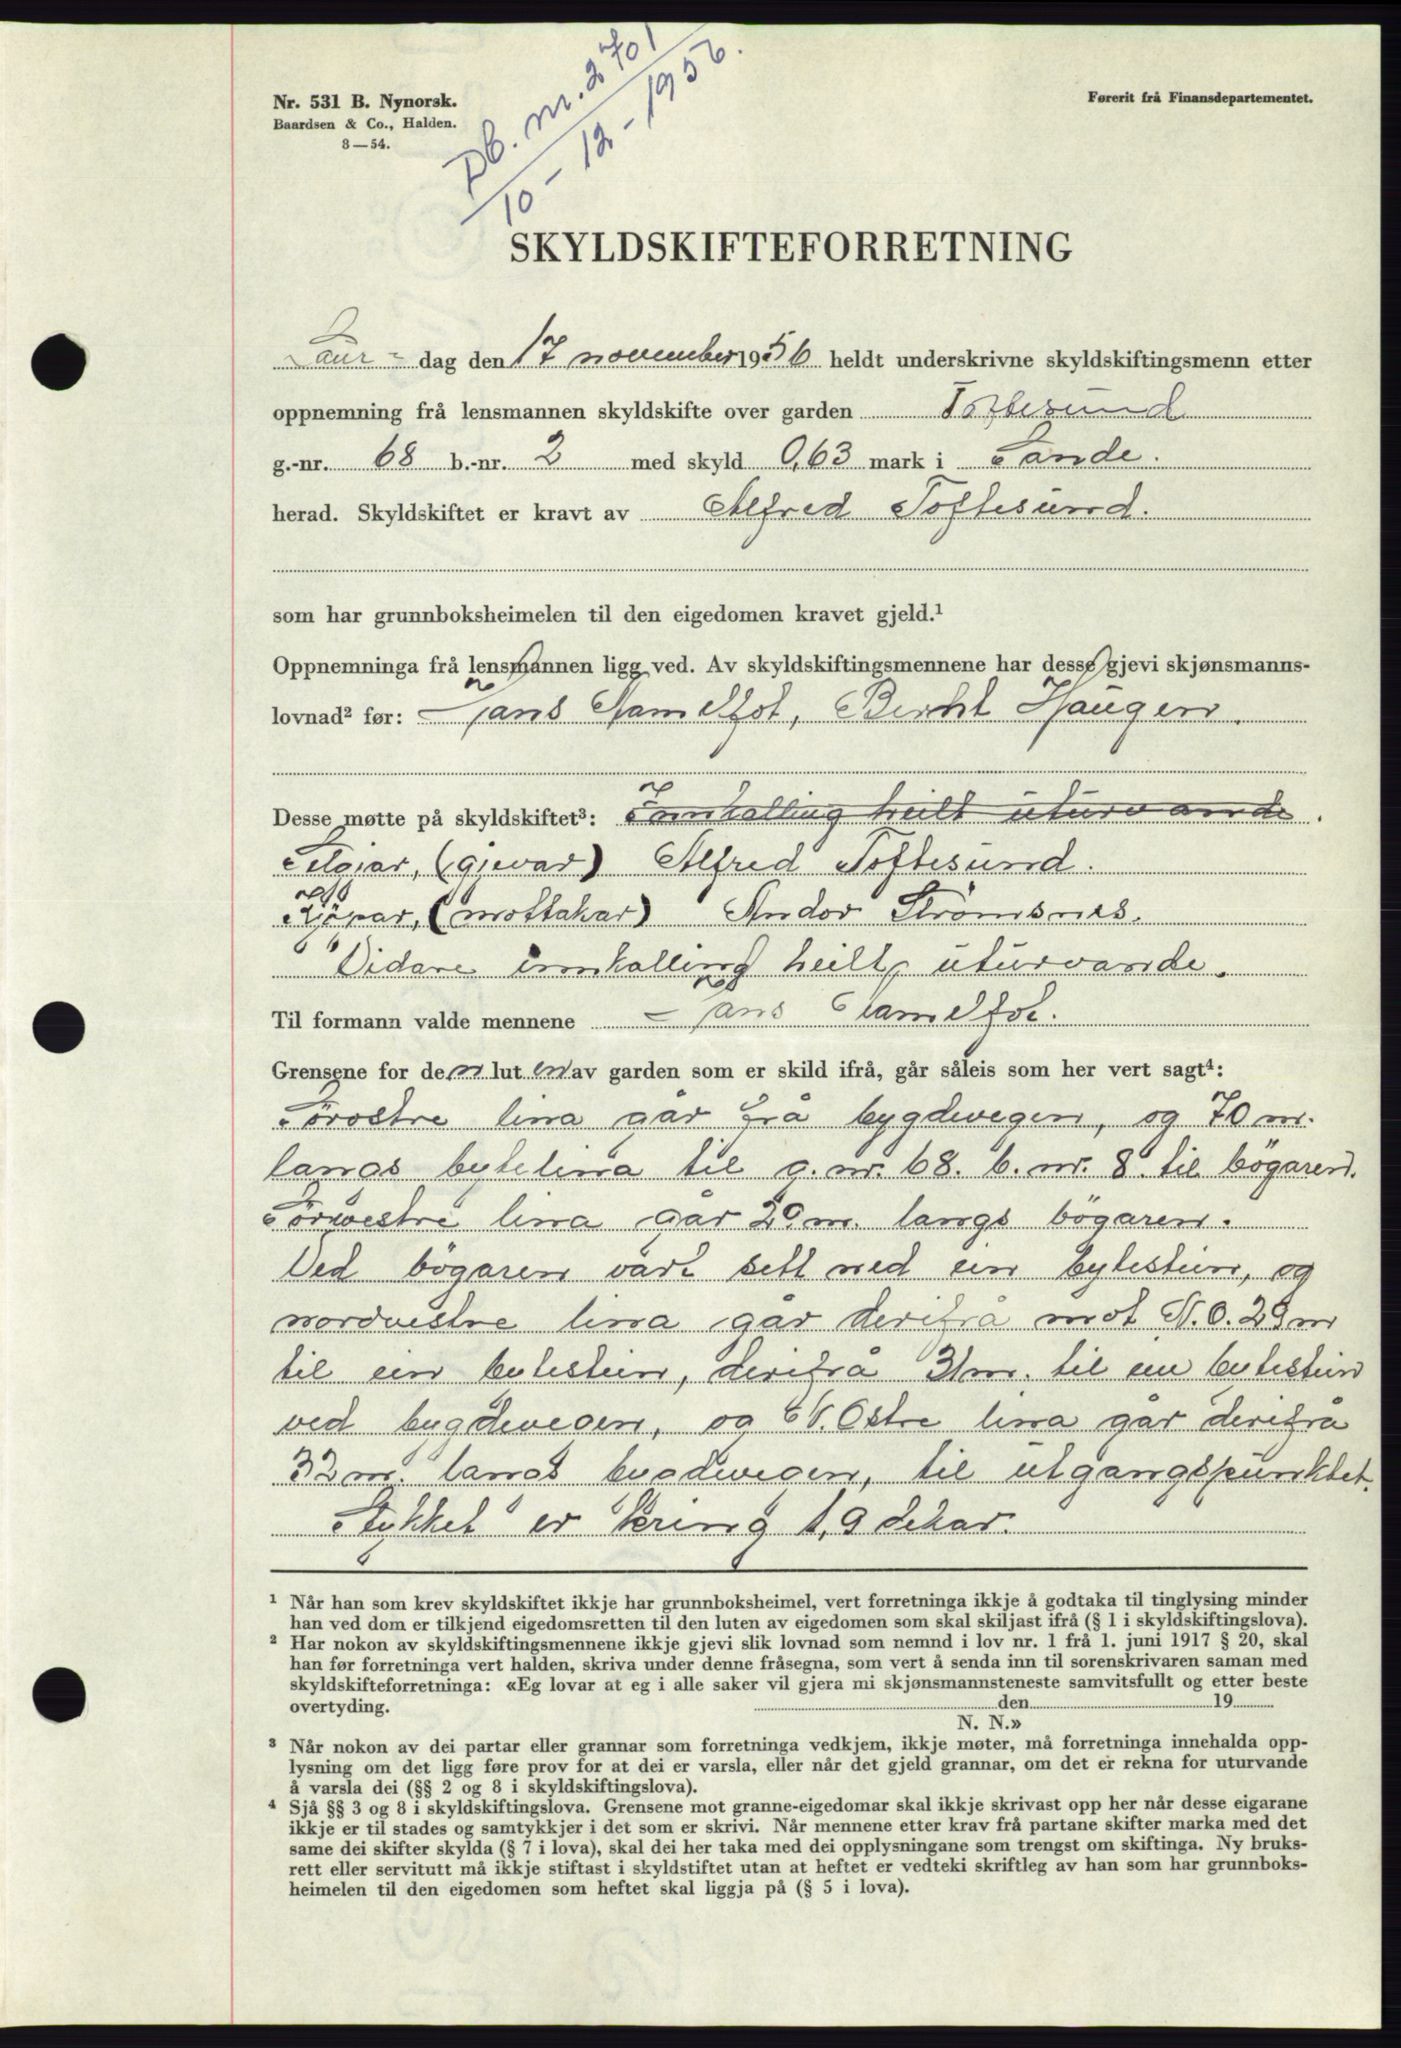 Db. nr. 2701
10-12-1956.
Nr. 531 B. Nynorsk.
Baardsen & Co., Halden.
8—54.
Førerit frå Finansdepartementet.
SKYLDSKIFTEFORRETNING
Laur- dag den 17 november 1956 heldt underskrivne skyldskiftingsmenn etter
oppnemning frå lensmannen skyldskifte over garden Toftesund
g.-nr. 68 b.-nr. 2 med skyld 0,63 mark i Sande.
herad. Skyldskiftet er kravt av Alfred Toftesund.
som har grunnboksheimelen til den eigedomen kravet gjeld.¹
Oppnemninga frå lensmannen ligg ved. Av skyldskiftingsmennene har desse gjevi skjønsmanns-
lovnad² før: Hans Hameltot, Bernt Haugen.
Desse møtte på skyldskiftet³: Innkalling heilt uturvande.
Seljar, (gjevar) Alfred Toftesund.
Kjöpar, (mottakar) Andor Strömsnes.
Vidare innkalling heilt uturvande.
Til formann valde mennene Hans
Grensene for den luten av garden som er skild ifrå, går såleis som her vert sagt⁴:
Sörostre lina går frå bygdevegen, og 70 m.
langs bytelina til g. nr. 68. b. nr. 8. til bögaren.
Sörvestre lina går 29 m. langs bögaren.
Ved bögaren vart sett ned ein bytestein, og
nordvestre lina går derifrå mot N.O. 29 m
til ein bytestein, derifrå 31 m. til ein bytestein
ved bygdevegen, og N. Ostre lina går derifrå
32 m. langs bygdevegen, til utgangspunktet.
Stykket er kring 1,9 dekar.
¹ Når han som krev skyldskiftet ikkje har grunnboksheimel, vert forretninga ikkje å godtaka til tinglysing minder
han ved dom er tilkjend eigedomsretten til den luten av eigedomen som skal skiljast ifrå (§ 1 i skyldskiftingslova).
² Har nokon av skyldskiftingsmennene ikkje gjevi slik lovnad som nemnd i lov nr. 1 frå 1. juni 1917 § 20, skal
han før forretninga vert halden, skriva under denne fråsegna, som vert å senda inn til sorenskrivaren saman med
skyldskifteforretninga: «Eg lovar at eg i alle saker vil gjera mi skjønsmannsteneste samvitsfullt og etter beste
overtyding. den 19
N. N.»
³ Når nokon av dei partar eller grannar som forretninga vedkjem, ikkje møter, må forretninga innehalda opp-
lysning om det ligg føre prov for at dei er varsla, eller når det gjeld grannar, om det er rekna for uturvande
å varsla dei (§§ 2 og 8 i skyldskiftingslova).
⁴ Sjå §§ 3 og 8 i skyldskiftingslova. Grensene mot granne-eigedomar skal ikkje skrivast opp her når desse eigarane
ikkje er til stades og samtykkjer i det som er skrivi. Når mennene etter krav frå partane skifter marka med det
same dei skifter skylda (§ 7 i lova), skal dei her taka med dei opplysningane som trengst om skiftinga. Ny bruks-
rett eller servitutt må ikkje stiftast i skyldstiftet utan at heftet er vedteki skriftleg av han som har grunnboks-
heimelen til den eigedomen som heftet skal liggja på (§ 5 i lova).